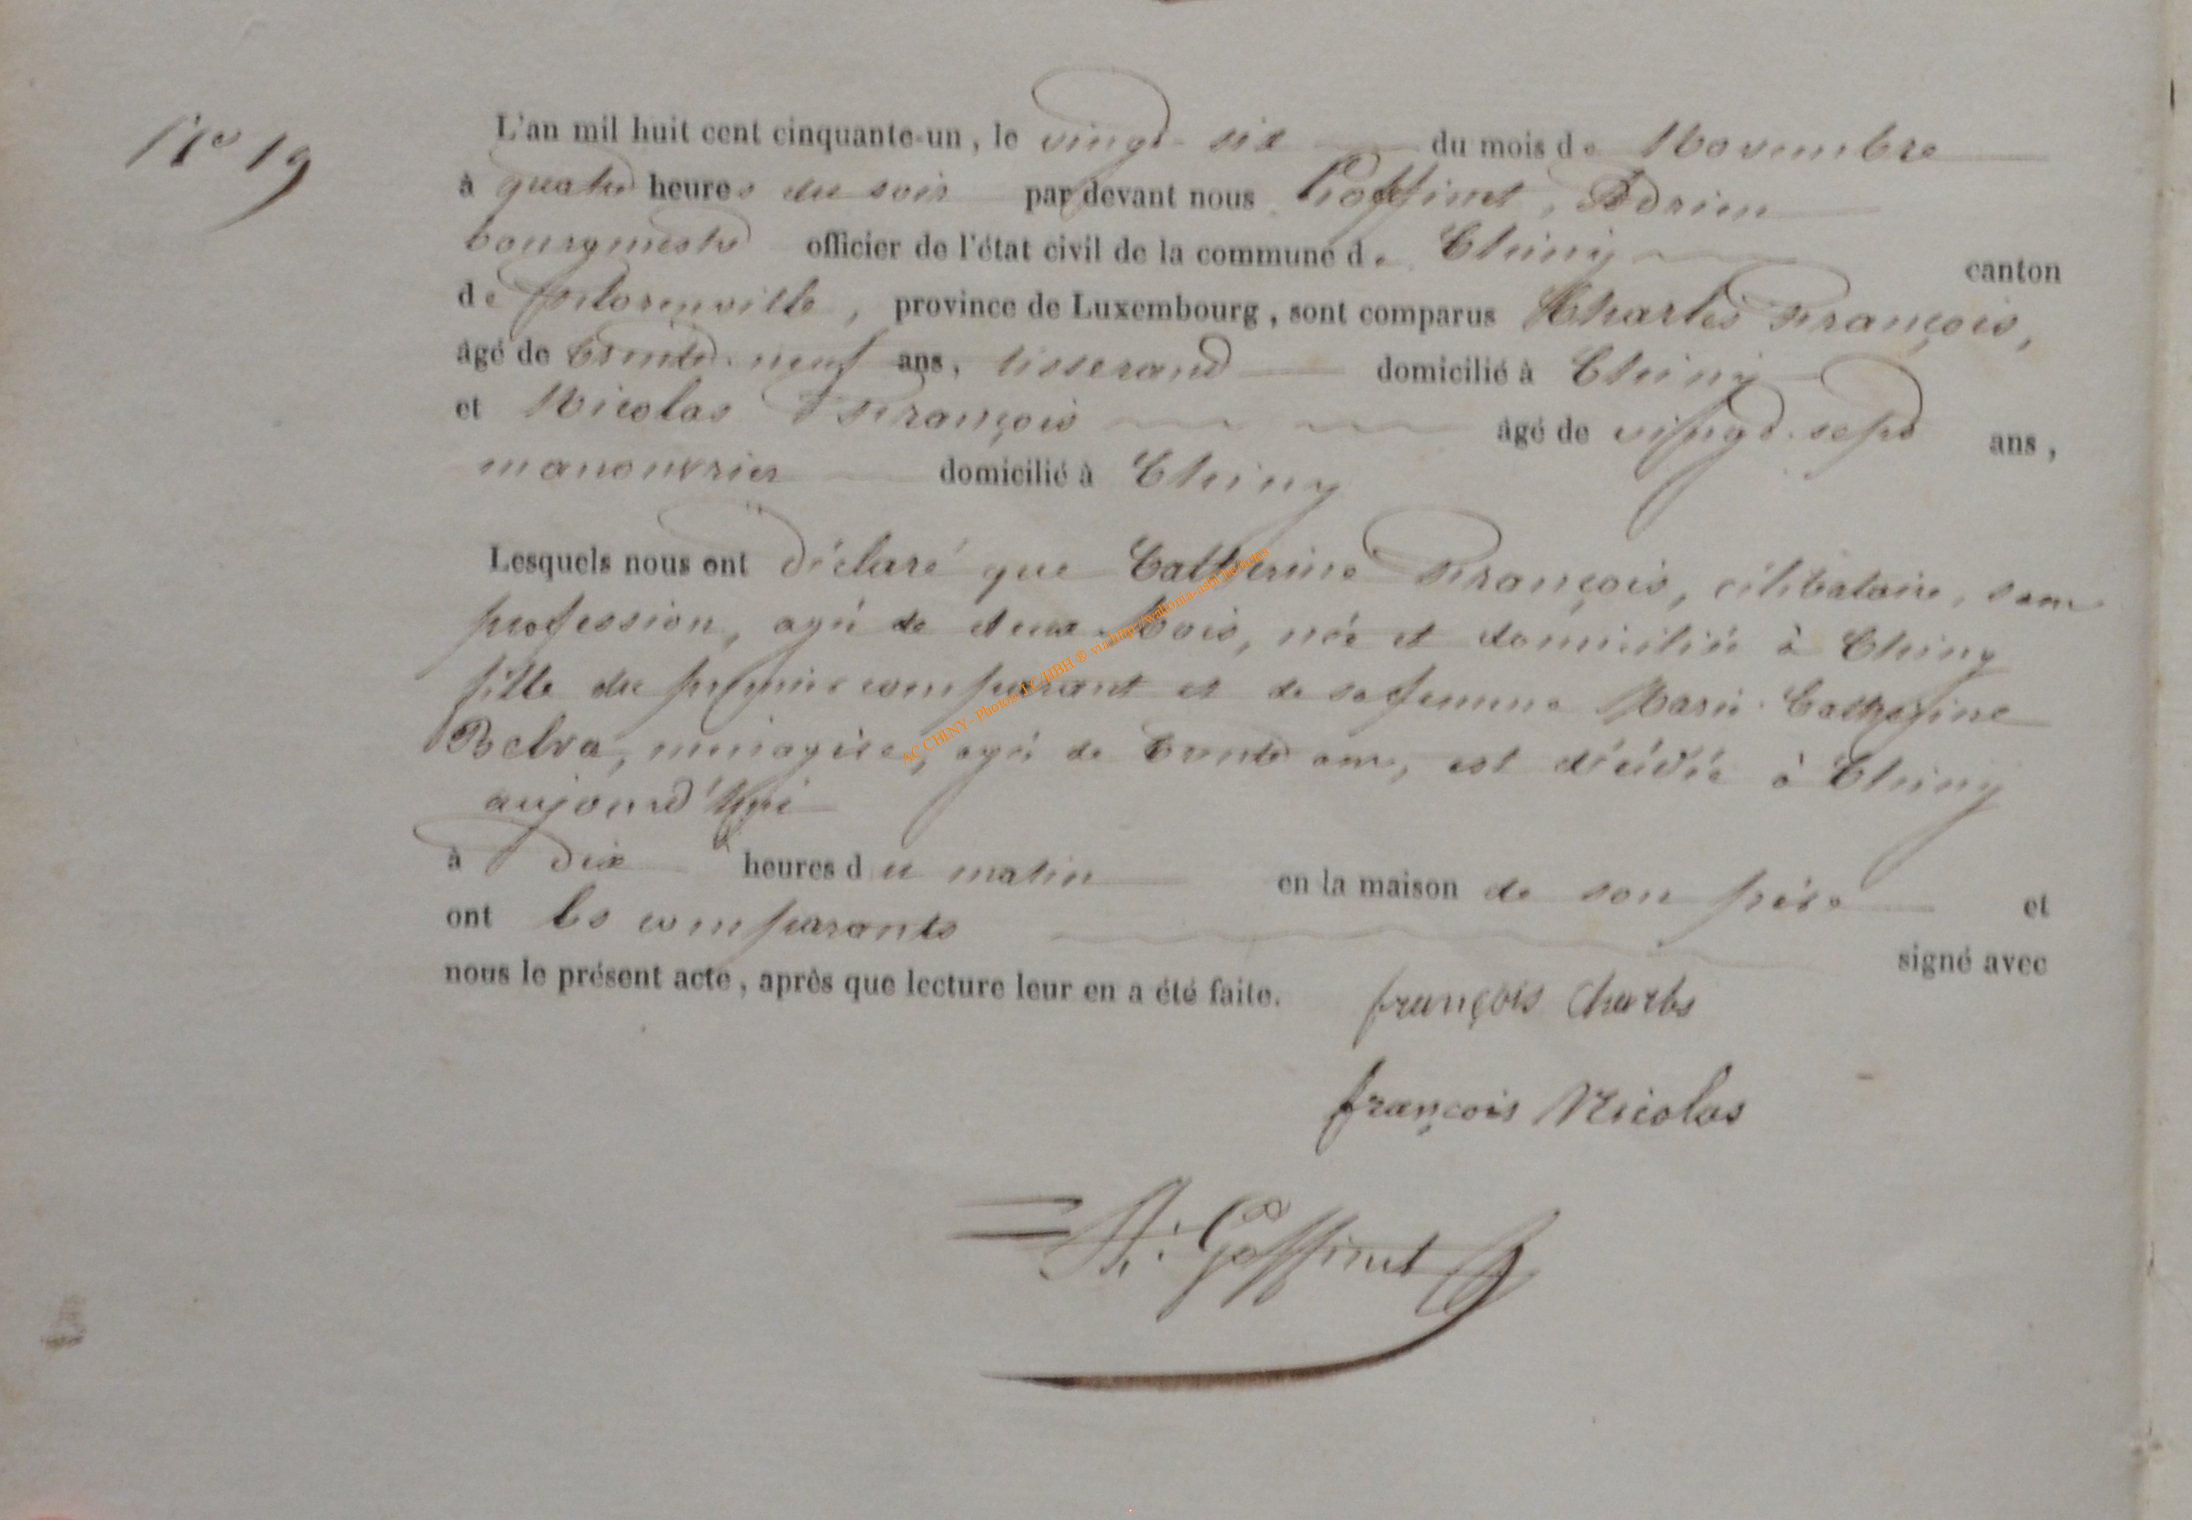 N° 19
L'an mil huit cent cinquante-un, le vingt-six du mois de Novembre
à quatre heures du soir par devant nous Goffinet, Adrien
bourgmestre officier de l'état civil de la commune de Chiny canton
de florenville, province de Luxembourg, sont comparus Charles François,
âgé de trente-neuf ans, tisserand domicilié à Chiny
et Nicolas François âgé de vingt-sept ans,
manouvrier domicilié à Chiny
Lesquels nous ont déclaré que Catherine François, célibataire, sans
profession, agée de deux mois, née et domiciliée à Chiny
fille du premier comparant et de sa femme Marie Catherine
ménagère, agée de trente ans, est décédée à Chiny
aujourd'hui
à dix heures du matin en la maison de son père et
ont les comparants signé avec
nous le présent acte, après que lecture leur en a été faite.
françois Charles
françois Nicolas
A. Goffinet
AC CHINY - Photos